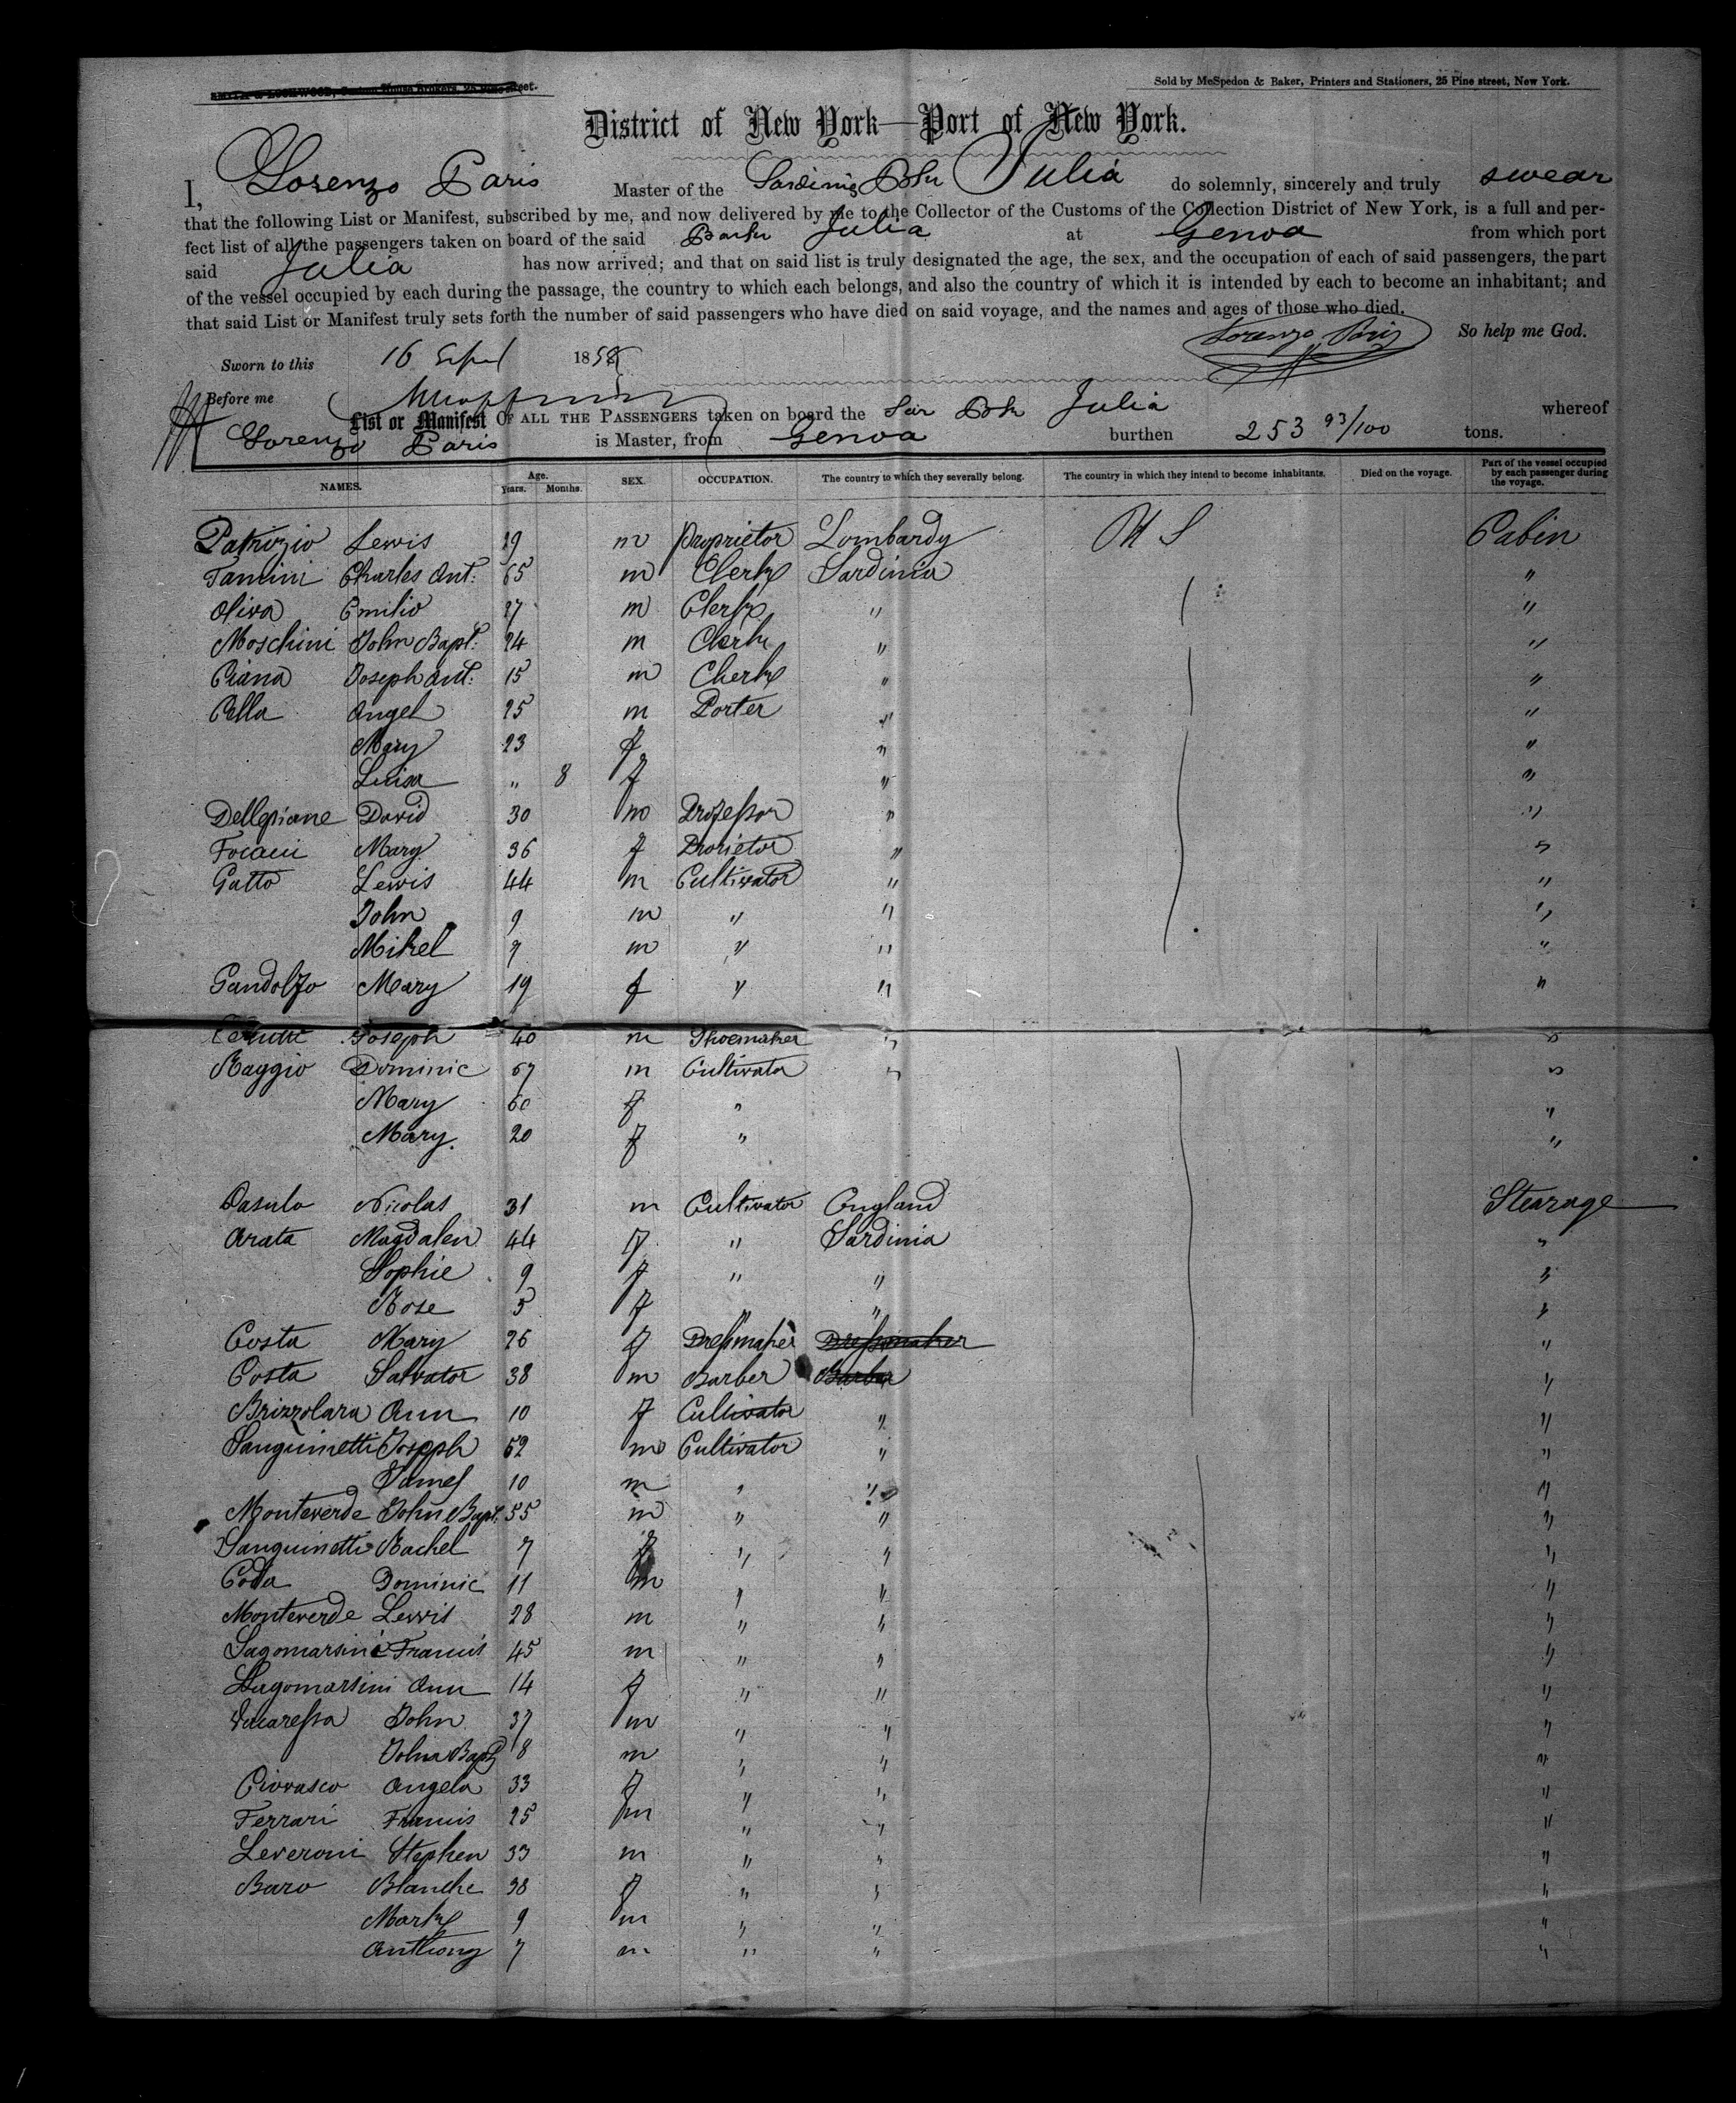 Sold by McSpedon & Baker, Printers and Stationers, 25 Pine street, New York.
District of New York—Port of New York.
I, Lorenzo Paris Master of the Sardinia Julia do solemnly, sincerely and truly swear
that the following List or Manifest, subscribed by me, and now delivered by me to the Collector of the Customs of the Collection District of New York, is a full and per-
fect list of all the passengers taken on board of the said Bark Julia at Genoa from which port
said Julia has now arrived; and that on said list is truly designated the age, the sex, and the occupation of each of said passengers, the part
of the vessel occupied by each during the passage, the country to which each belongs, and also the country of which it is intended by each to become an inhabitant; and
that said List or Manifest truly sets forth the number of said passengers who have died on said voyage, and the names and ages of those who died.
Lorenzo Paris So help me God.
Sworn to this 16 1858
Before me
List or Manifest OF ALL THE PASSENGERS taken on board the Sar Julia whereof
Lorenzo Paris is Master, from Genoa burthen 253 93/100 tons.
NAMES. Age. Years. Months. SEX. OCCUPATION. The country to which they severally belong. The country in which they intend to become inhabitants. Died on the voyage. Part of the vessel occupied by each passenger during the voyage.
Patrizio Lewis 29 m Proprietor Lombardy U S Cabin
Tamini Charles Ant: 65 m Clerk Sardinia "
Oliva Emilio 27 m Clerk " "
Moschini John Bapt: 24 m Clerk " "
Piana Joseph Ant: 15 m Clerk " "
Pella Angel 25 m Porter " "
Mary 23 f " "
Luisa " 8 f " "
Dellepiane David 30 m Professor " "
Mary 36 f Prorietor " "
Gatto Lewis 44 m Cultivator " "
John 9 m " " "
Mikel 7 m " " "
Gandolfo Mary 19 f " " "
Joseph 40 m Shoemaker " "
Raggio Dominic 67 m Cultivator " "
Mary 60 f " "
Mary 20 f " "
Nicolas 31 m Cultivator England Stearage
Arata Magdalen 44 f " Sardinia "
Sophie 9 f " " "
Rose 5 f " " "
Costa Mary 26 f Dressmaker Dressmaker "
Costa Salvator 38 m Barber Barber "
Brizzolara Ann 10 f Cultivator " "
Sanguinetti Joseph 52 m Cultivator " "
James 10 m " " "
Monteverde John Bapt. 55 m " " "
Sanguinetti Rachel 7 f " " "
Coda Dominic 11 m " " "
Monteverde Lewis 28 m " " "
Lagomarsini Francis 45 m " " "
Lagomarsini Ann 14 f " " "
Vacaressa John 37 m " " "
John Bapt 8 m " " "
Ciovasco Angela 33 f " " "
Ferrari Francis 25 m " " "
Leveroni Stephen 33 m " " "
Baro Blanche 38 f " " "
Mark 9 m " " "
Anthony 7 m " " "